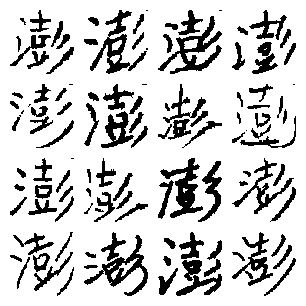 澎澎澎澎
澎澎澎澎
澎澎澎澎
澎澎澎澎